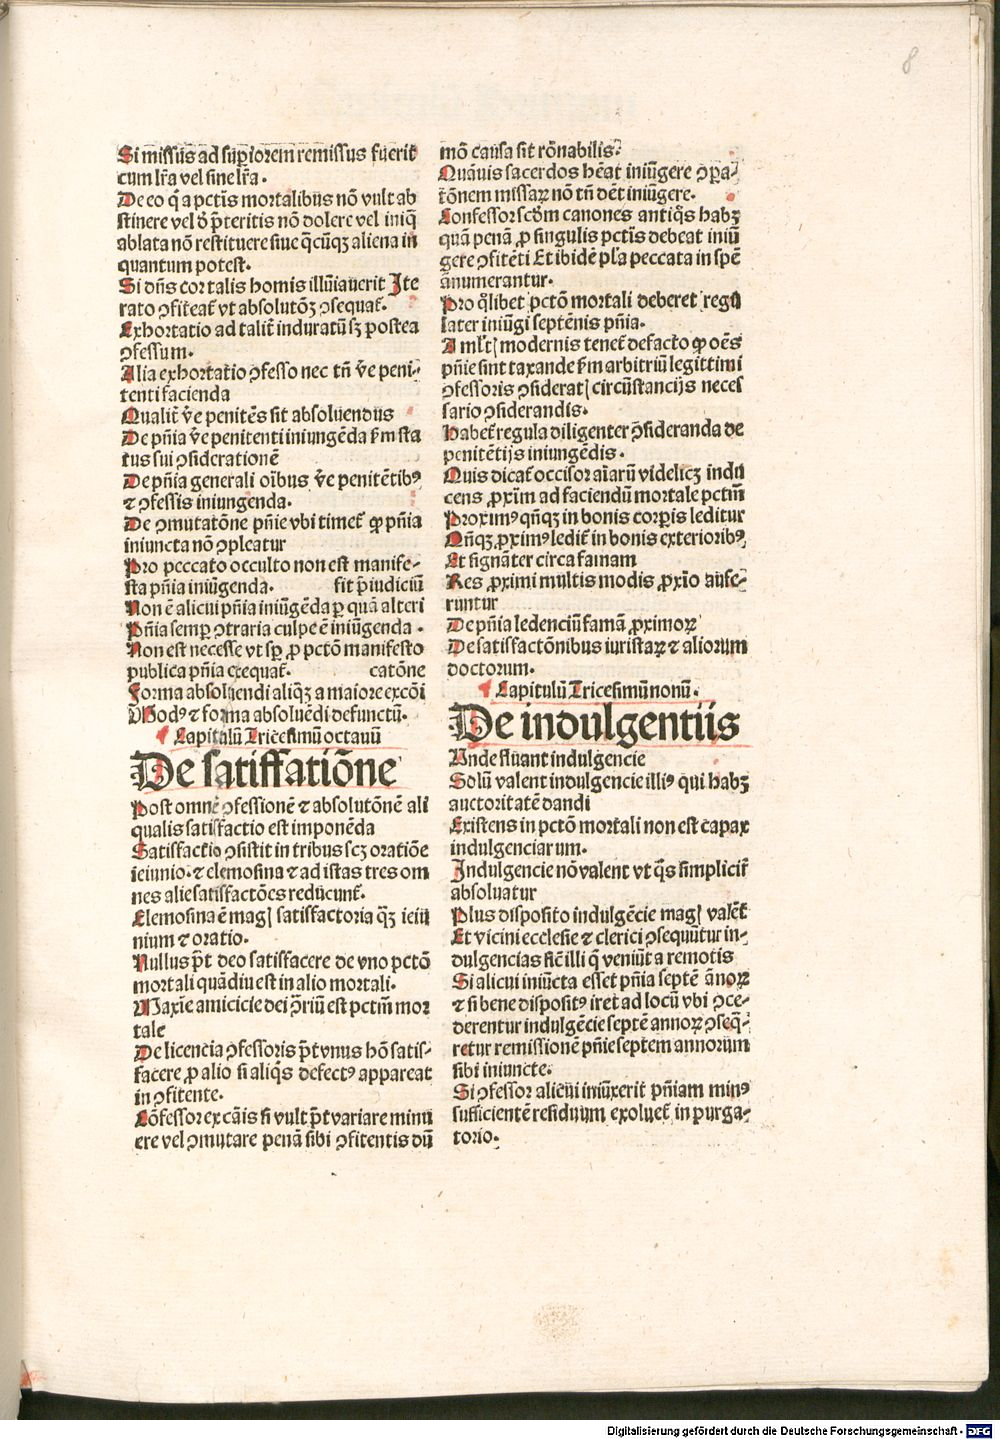 8
Si missus ad supiorem remissus fuerit
cum lr̄a vel sine lr̄a.
De eo q̄ a pctis mortalibus nō vult ab
stinere vel ꝺ p̄teritis nō dolere vel iniq̄
ablata nō restituere siue q̄cūqꝫ aliena in
quantum potest.
Si dn̄s cor talis homis illūiauerit Ite
rato ꝯfiteat᷑ vt absolutōꝫ ꝯsequat᷑.
Exhortatio ad talit᷑ induratū sꝫ postea
ꝯfessum.
Alia exhortatio ꝯfesso nec tn̄ ve̅ peni⸗
tenti facienda
Qualit᷑ ve̅ penitēs sit absoluendus
De pn̄ia ve̅ penitenti iniungēda ẜm sta
tus sui ꝯsiderationē
De pn̄ia generali oībus ve̅ penitētibꝰ
⁊ ꝯfessis iniungenda.
De ꝯmutatōne pn̄ie vbi timet᷑ ꝙ pn̄ia
iniuncta nō ꝯpleatur
Pro peccato occulto non est manife⸗
sta pn̄ia iniūgenda. sit p̄iudiciū
Non ē alicui pn̄ia iniūgēda ꝑ quā alteri
Pn̄ia semꝑ ꝯtraria culpe ē iniūgenda.
Non est necesse vt sꝑ ꝓ pctō manifesto
publica pn̄ia exequat᷑. catōne
Forma absoluendi aliqꝫ a maiore excōi
Modꝰ ⁊ forma absoluēdi defunctū.
Capitulū Tricesimū octauū
De satiffatiōne
Post omnē ꝯfessionē ⁊ absolutōnē ali
qualis satisfactio est imponēda
Satisfactio ꝯsistit in tribus scꝫ oratiōe
ieiunio. ⁊ elemosina ⁊ ad istas tres om
nes alie satisfactōes reducunt᷑.
Elemosina ē mag̉ satisfactoria qꝫ̄ ieiū
nium ⁊ oratio.
Nullus p̄t deo satisfacere de vno pctō
mortali quādiu est in alio mortali.
Maxīe amicicie dei ꝯ̄riū est pctm̄ mor
tale
De licencia ꝯfessoris p̄t vnus hō satis⸗
facere ꝓ alio si aliq̄s defectꝰ appareat
in ꝯfitente.
Cōfessor ex cāis si vult p̄t variare minu
ere vel ꝯmutare penā sibi ꝯfitentis dū
mō causa sit rōnabilis.
Quāuis sacerdos heat᷑ iniūgere ꝯꝑa⸗
tōnem missaꝝ nō tn̄ det᷑ iniūgere.
Confessor scdm̄ canones antiq̄s habꝫ
quā penā ꝓ singulis pctis debeat iniū
gere ꝯfitēti Et ibidē pl̄a peccata in spē
ānumerantur.
Pro q̄libet pctō mortali deberet regu
lariter iniūgi septēnis pn̄ia.
A ml̄t̉ modernis tenet᷑ defacto ꝙ oēs
pn̄ie sint taxande ẜm arbitriū legittimi
ꝯfessoris ꝯsiderat̉ circūstancijs neces
sario ꝯsiderandis.
Habet᷑ regula diligenter ꝯ̄sideranda de
penitētijs iniungēdis.
Quis dicat᷑ occisor aīarū videlicꝫ indu
cens ꝓxim̄ ad faciendū mortale pctm̄
Proximꝰ qn̄qꝫ in bonis corꝑis leditur
Qn̄qꝫ ꝓximꝰ ledit᷑ in bonis exterioribꝰ
Et signāter circa famam
Res ꝓximi multis modis ꝓxīo aufe⸗
runtur
De pn̄ia ledenciū famā ꝓximoꝝ
De satisfactōnibus iuristaꝝ ⁊ aliorum
doctorum.
Capitulū Tricesimū nonū.
De indulgentiis
Unde fluant indulgencie
Solū valent indulgencie illiꝰ qui habꝫ
auctoritatē dandi
Existens in pctō mortali non est capax
indulgenciarum.
Indulgencie nō valent vt q̄s simplicit᷑
absoluatur
Plus disposito indulgēcie mag̉ valēt
Et vicini ecclesie ⁊ clerici ꝯsequūtur in⸗
dulgencias sic̄ illi q̄ veniūt a remotis
Si alicui iniūcta esset pn̄ia septē ānoꝝ
⁊ si bene dispositꝰ iret ad locū vbi ꝯce⸗
derentur indulgēcie septē annoꝝ ꝯseq̄⸗
retur remissionē pn̄ie septem annorum
sibi iniuncte.
Si ꝯfessor alicui iniūxerit pn̄iam minꝰ
sufficientē residuum exoluet᷑ in purga⸗
torio.
Digitalisierung gefördert durch die Deutsche Forschungsgemeinschaft - DFG